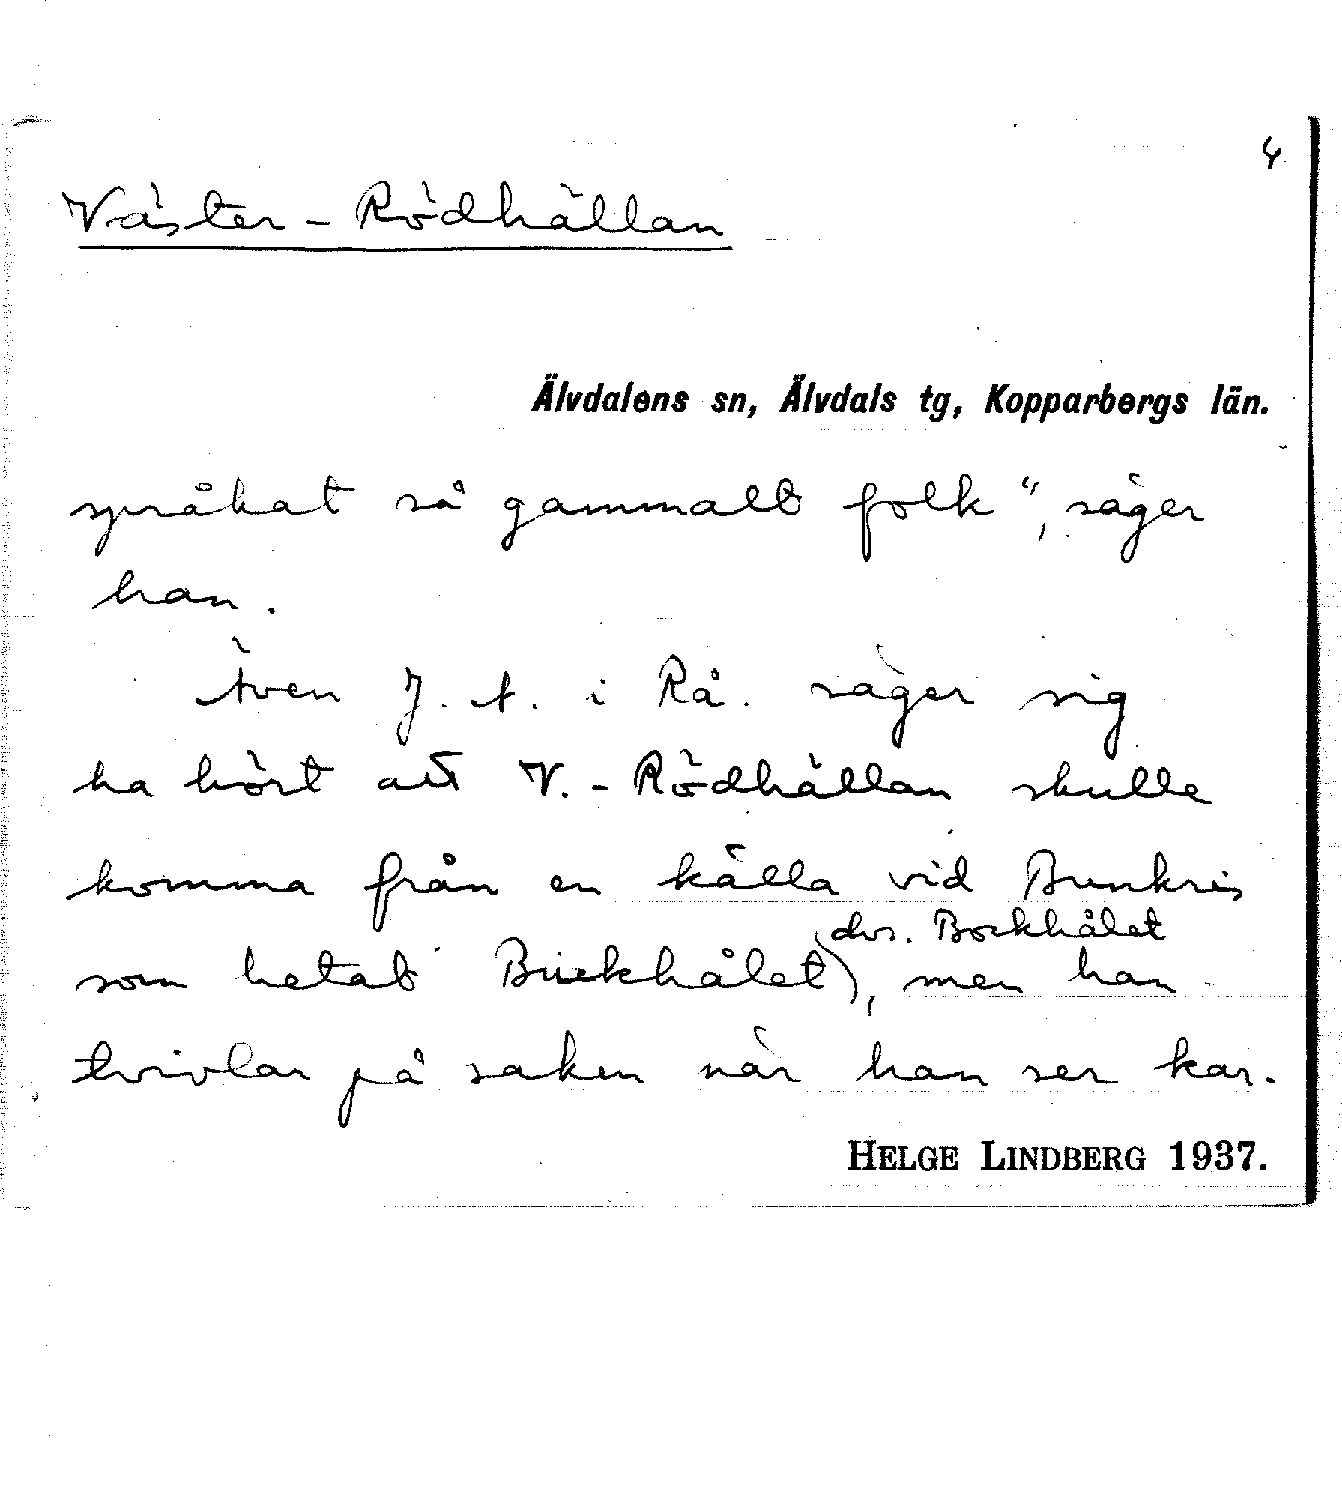 4
Väster-Rödhällan
Älvdalens sn, Älvdals tg, Kopparbergs län.
språkat så gammalt folk", säger
han.
Även J. A. i Rå. säger sig
ha hört att V.-Rödhällan skulle
komma från en källa vid Bunkris
dvs. Bockhålet
som hetat Buckhålet), men han
tvivlar på saken när han ser kar-
HELGE LINDBERG 1937.